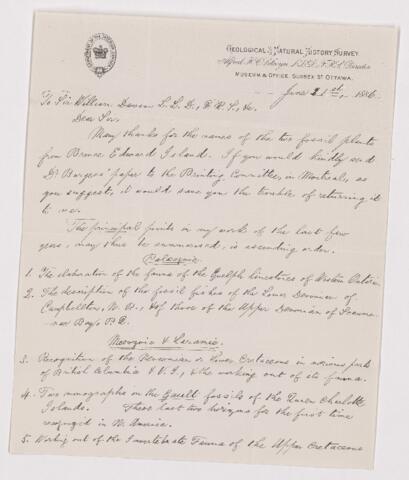 GEOLOGICAL & NATURAL HISTORY SURVEY.
Alfred R. C. Selwyn, L.L.D., F.R.S., Director.
MUSEUM & OFFICE, SUSSEX ST OTTAWA.
June 21st, 1886.
To Sir William Dawson L.L.D., F.R.S., &c.
Dear Sir.
Many thanks for the names of the two fossil plants
from Prince Edward Island. If you would kindly send
Dr Burgess' paper to the Printing Committee, in Montreal, as
you suggest, it would save you the trouble of returning it
to me.
The principal points in my work of the last few
years, may thus be summarised, in ascending order.
Palaeozoic.
1. The elaboration of the fauna of the Guelph limestones of Western Ontario.
2. The description of the fossil fishes of the Lower Devonian of
Campbellton, N.B., & of those of the Upper Devonian of Scaumenac
Bay, P.Q.
Mesozoic & Laramie.
3. Recognition of the Neocomian or Lower Cretaceous in various parts
of British Columbia & V.I., & the working out of its fauna.
4. Two monographs on the Gault fossils of the Queen Charlotte
Islands. These last two horizons for the first time
recognized in N. America.
5. Working out of the Invertebrate Fauna of the Upper Cretaceous